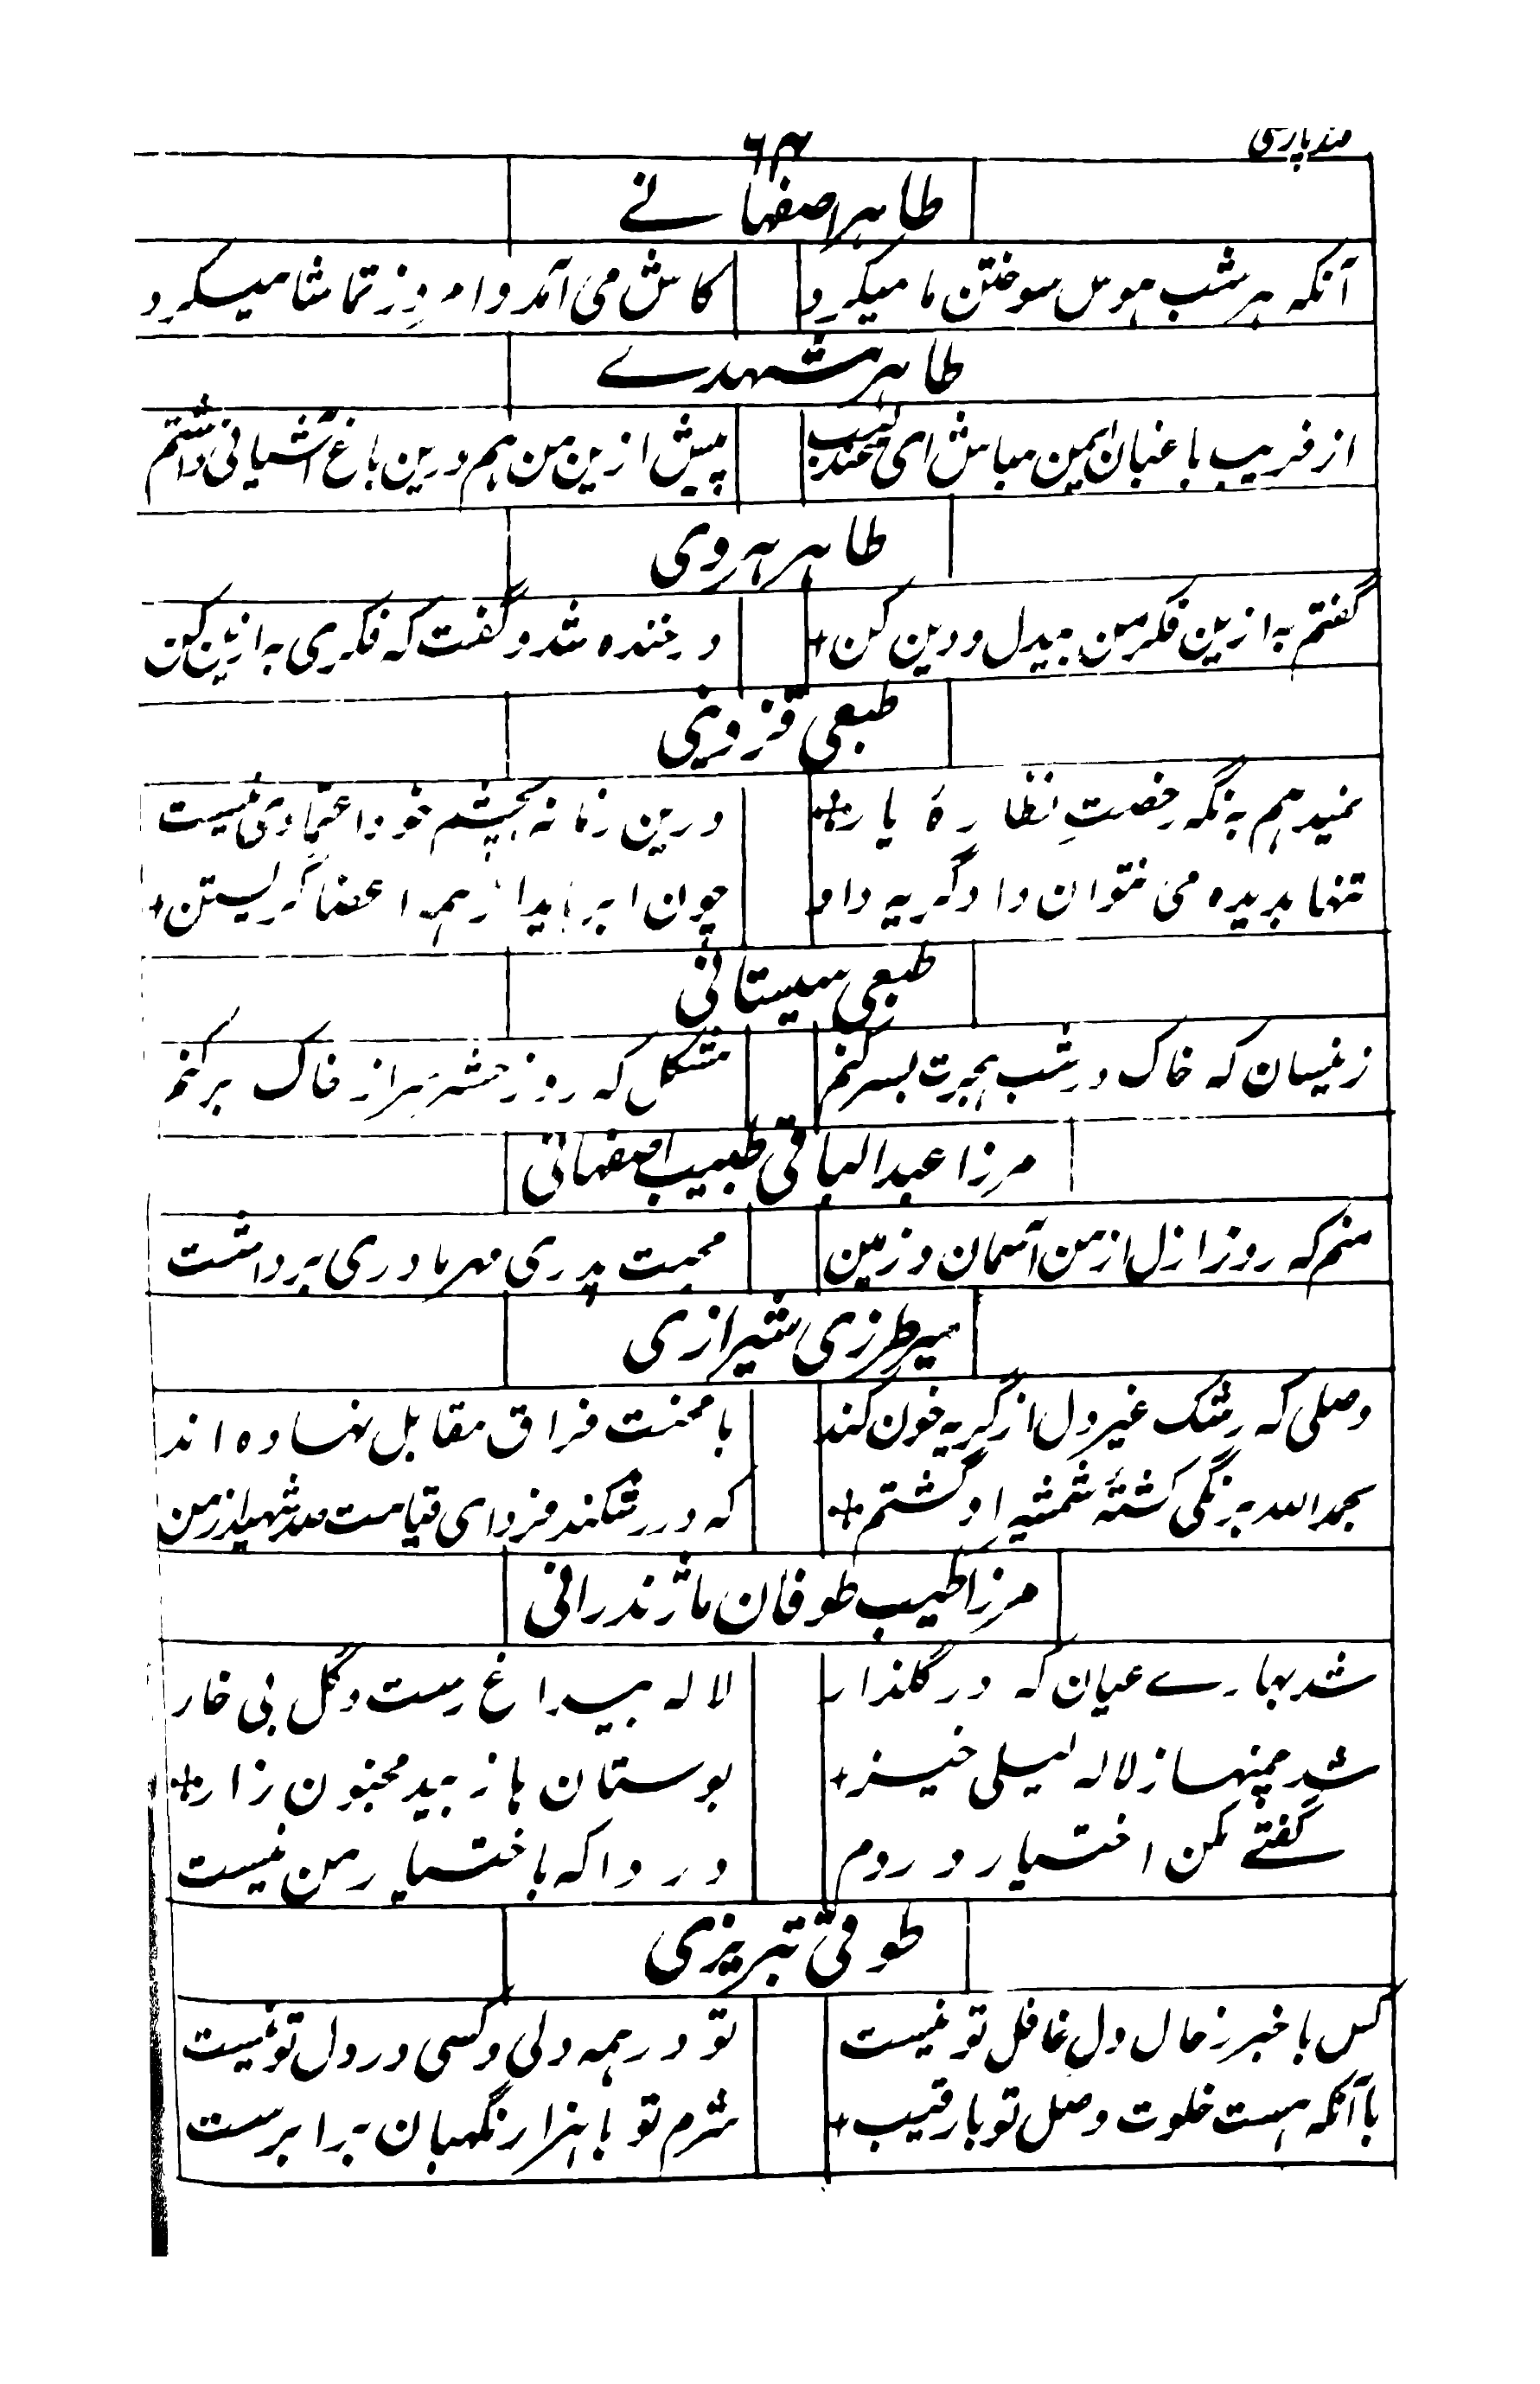 ۶۴
طاہر اصفہانے
آنکہ ہر شب ہوس سوختن ما میکرد
کاش می آمد و امروز تماشا میکرد
طاہر مشہدے
از فریب باغبان ایمن مباش ای عندلیب
پیش ازین من ہم درین باغ آشیانی داشتم
طاہر ہروی
گفتم بہ ازین فکر من بیدل و دین کن
در خندہ شد و گفت کہ فکری بہ ازین کن
طبعی قزوینی
نمیدہم بہ نگہ رخصتِ نظارۂ یار
درین زمانہ بچشم خود اعتمادی نیست
تنہا بدیدہ می نتوان داد گریہ داد
چون ابر باید از ہمہ اعضا گریستن
طبعی سیستانی
زینسان کہ خاک در شب ہجرت بسر کنم
مشکل کہ روز حشر سر از خاک بر کنم
مرزا عبد الباقی طبیب اصفہانی
منم کہ روز ازل از من آسمان و زمین
محبت پدری مہر مادری برداشت
میر طرزی شیرازی
وصلی کہ رشک غیر دل از گریہ خون کند
با محنت فراق مقابل نہادہ اند
بحمد اللہ برنگی کشتۂ شمشیر او گشتم
کہ در رشکند فردای قیامت صد شہید از من
مرزا طیب طوفان ماژندرانی
شد بہارے عیان کہ در گلذار
لالہ بیداغ رست و گل بی خار
شد چمنہا ز لالہ لیلی خیز
بوستان ہا ز بید مجنون زار
گفتے بکن اختیار دردم
دردا کہ باختیار من نیست
طوفی تبریزی
کس با خبر ز حال دل غافل تو نیست
تو در ہمہ دلی و کسی در دل تو نیست
با آنکہ ہست خلوت وصل تو با رقیب
شرم تو با ہزار نگہبان برابرست